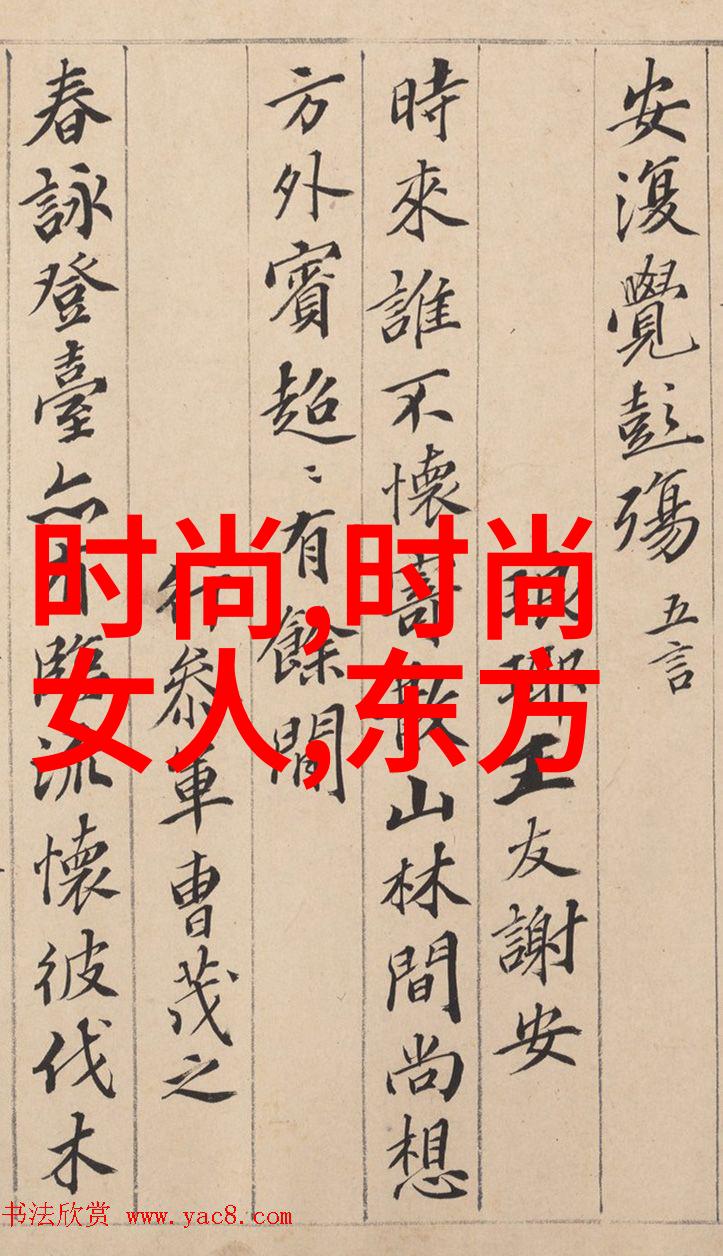 安復覺彭殤 五言
琅琊王友謝安
時來誰不懷寄散山林間尚想
方外賓超〻有餘間
行參軍曹茂之
春詠登臺亦有臨流懷彼伐木
时尚,时尚
女人,东方
书法欣赏 www.yac8.com